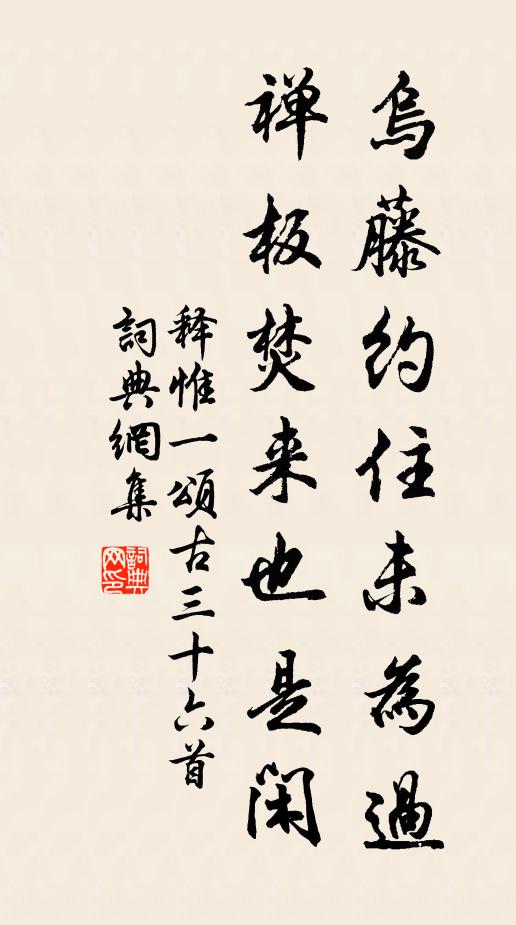 烏藤約住未為過
禅板焚来也是閑
释惟一頌古三十六首
詞典網集
詞典网印